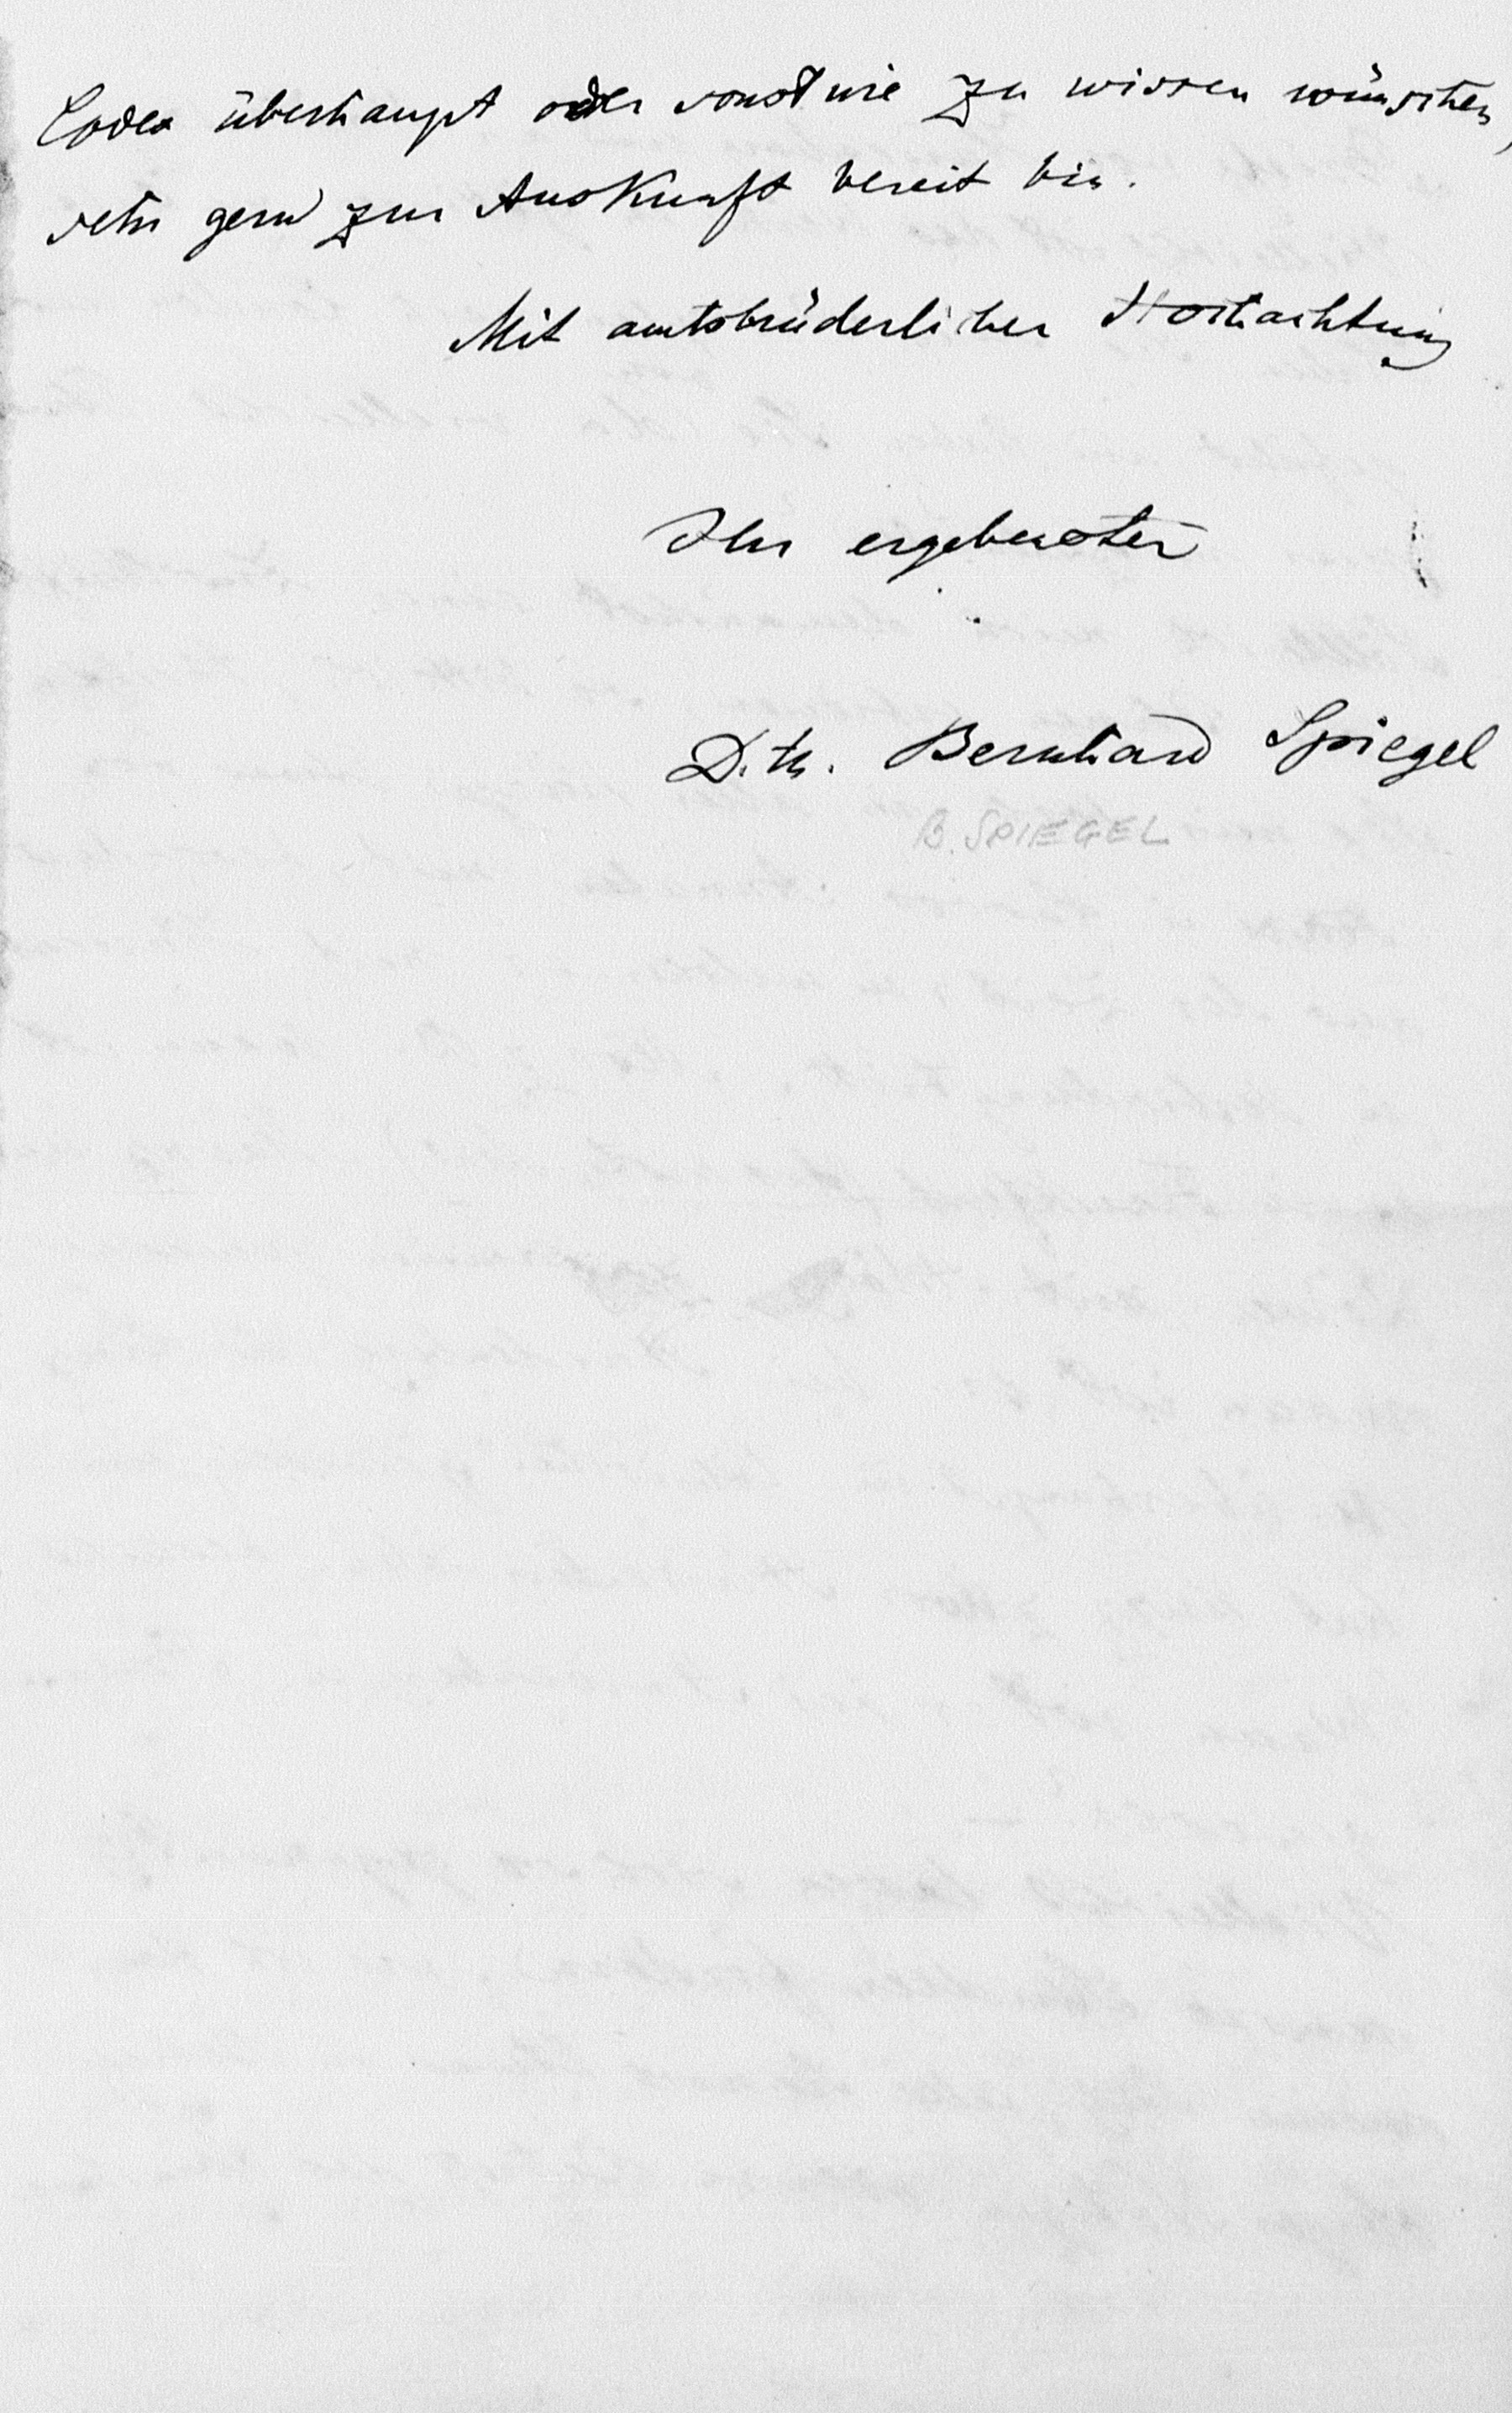 Codex überhaupt oder sonst wie zu wissen wünschen,
sehr gern zur Auskunft bereit bin.
Mit amtsbrüderlicher Hochachtung
Ihr ergebenster
D. th. Bernhard Spiegel
B. SPIEGEL